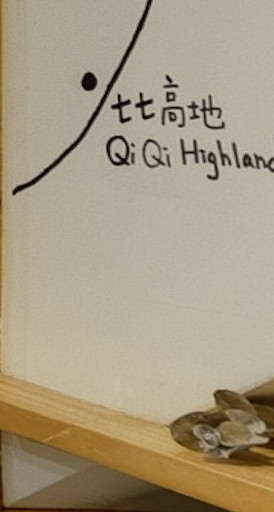 七七高地
QiQi Highland